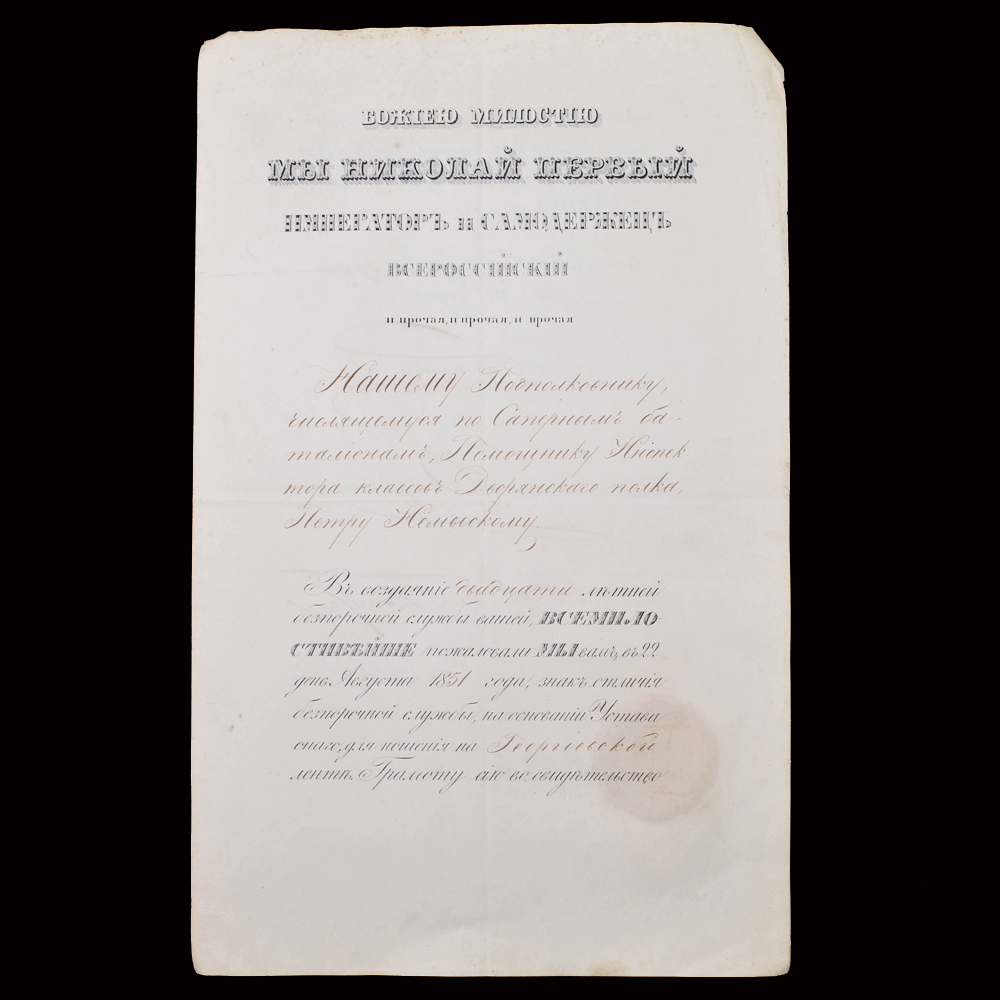 БОЖІЕЮ МИЛОСТІЮ
МЫ НИКОЛАЙ ПЕРВЫЙ
ИМПЕРАТОРЪ и САМОДЕРЖЕЦЪ
ВСЕРОССІЙСКІЙ
и прочая, и прочая, и прочая
Нашему Подполковнику,
числящемуся по Сапернымъ ба-
таліонамъ, Помощнику Инспек-
тора классовъ Дворянскаго полка,
Петру
Въ воздаяніе двадцати лѣтней
безпорочной службы вашей, ВСЕМИЛО-
СТИВѢЙШЕ пожаловали МЫ вамъ, въ 22
день Августа 1851 года, знакъ отличія
безпорочной службы, на основаніи Устава
онаго, для ношенія на Георгіевской
лентѣ. Грамоту сію во свидѣтельство